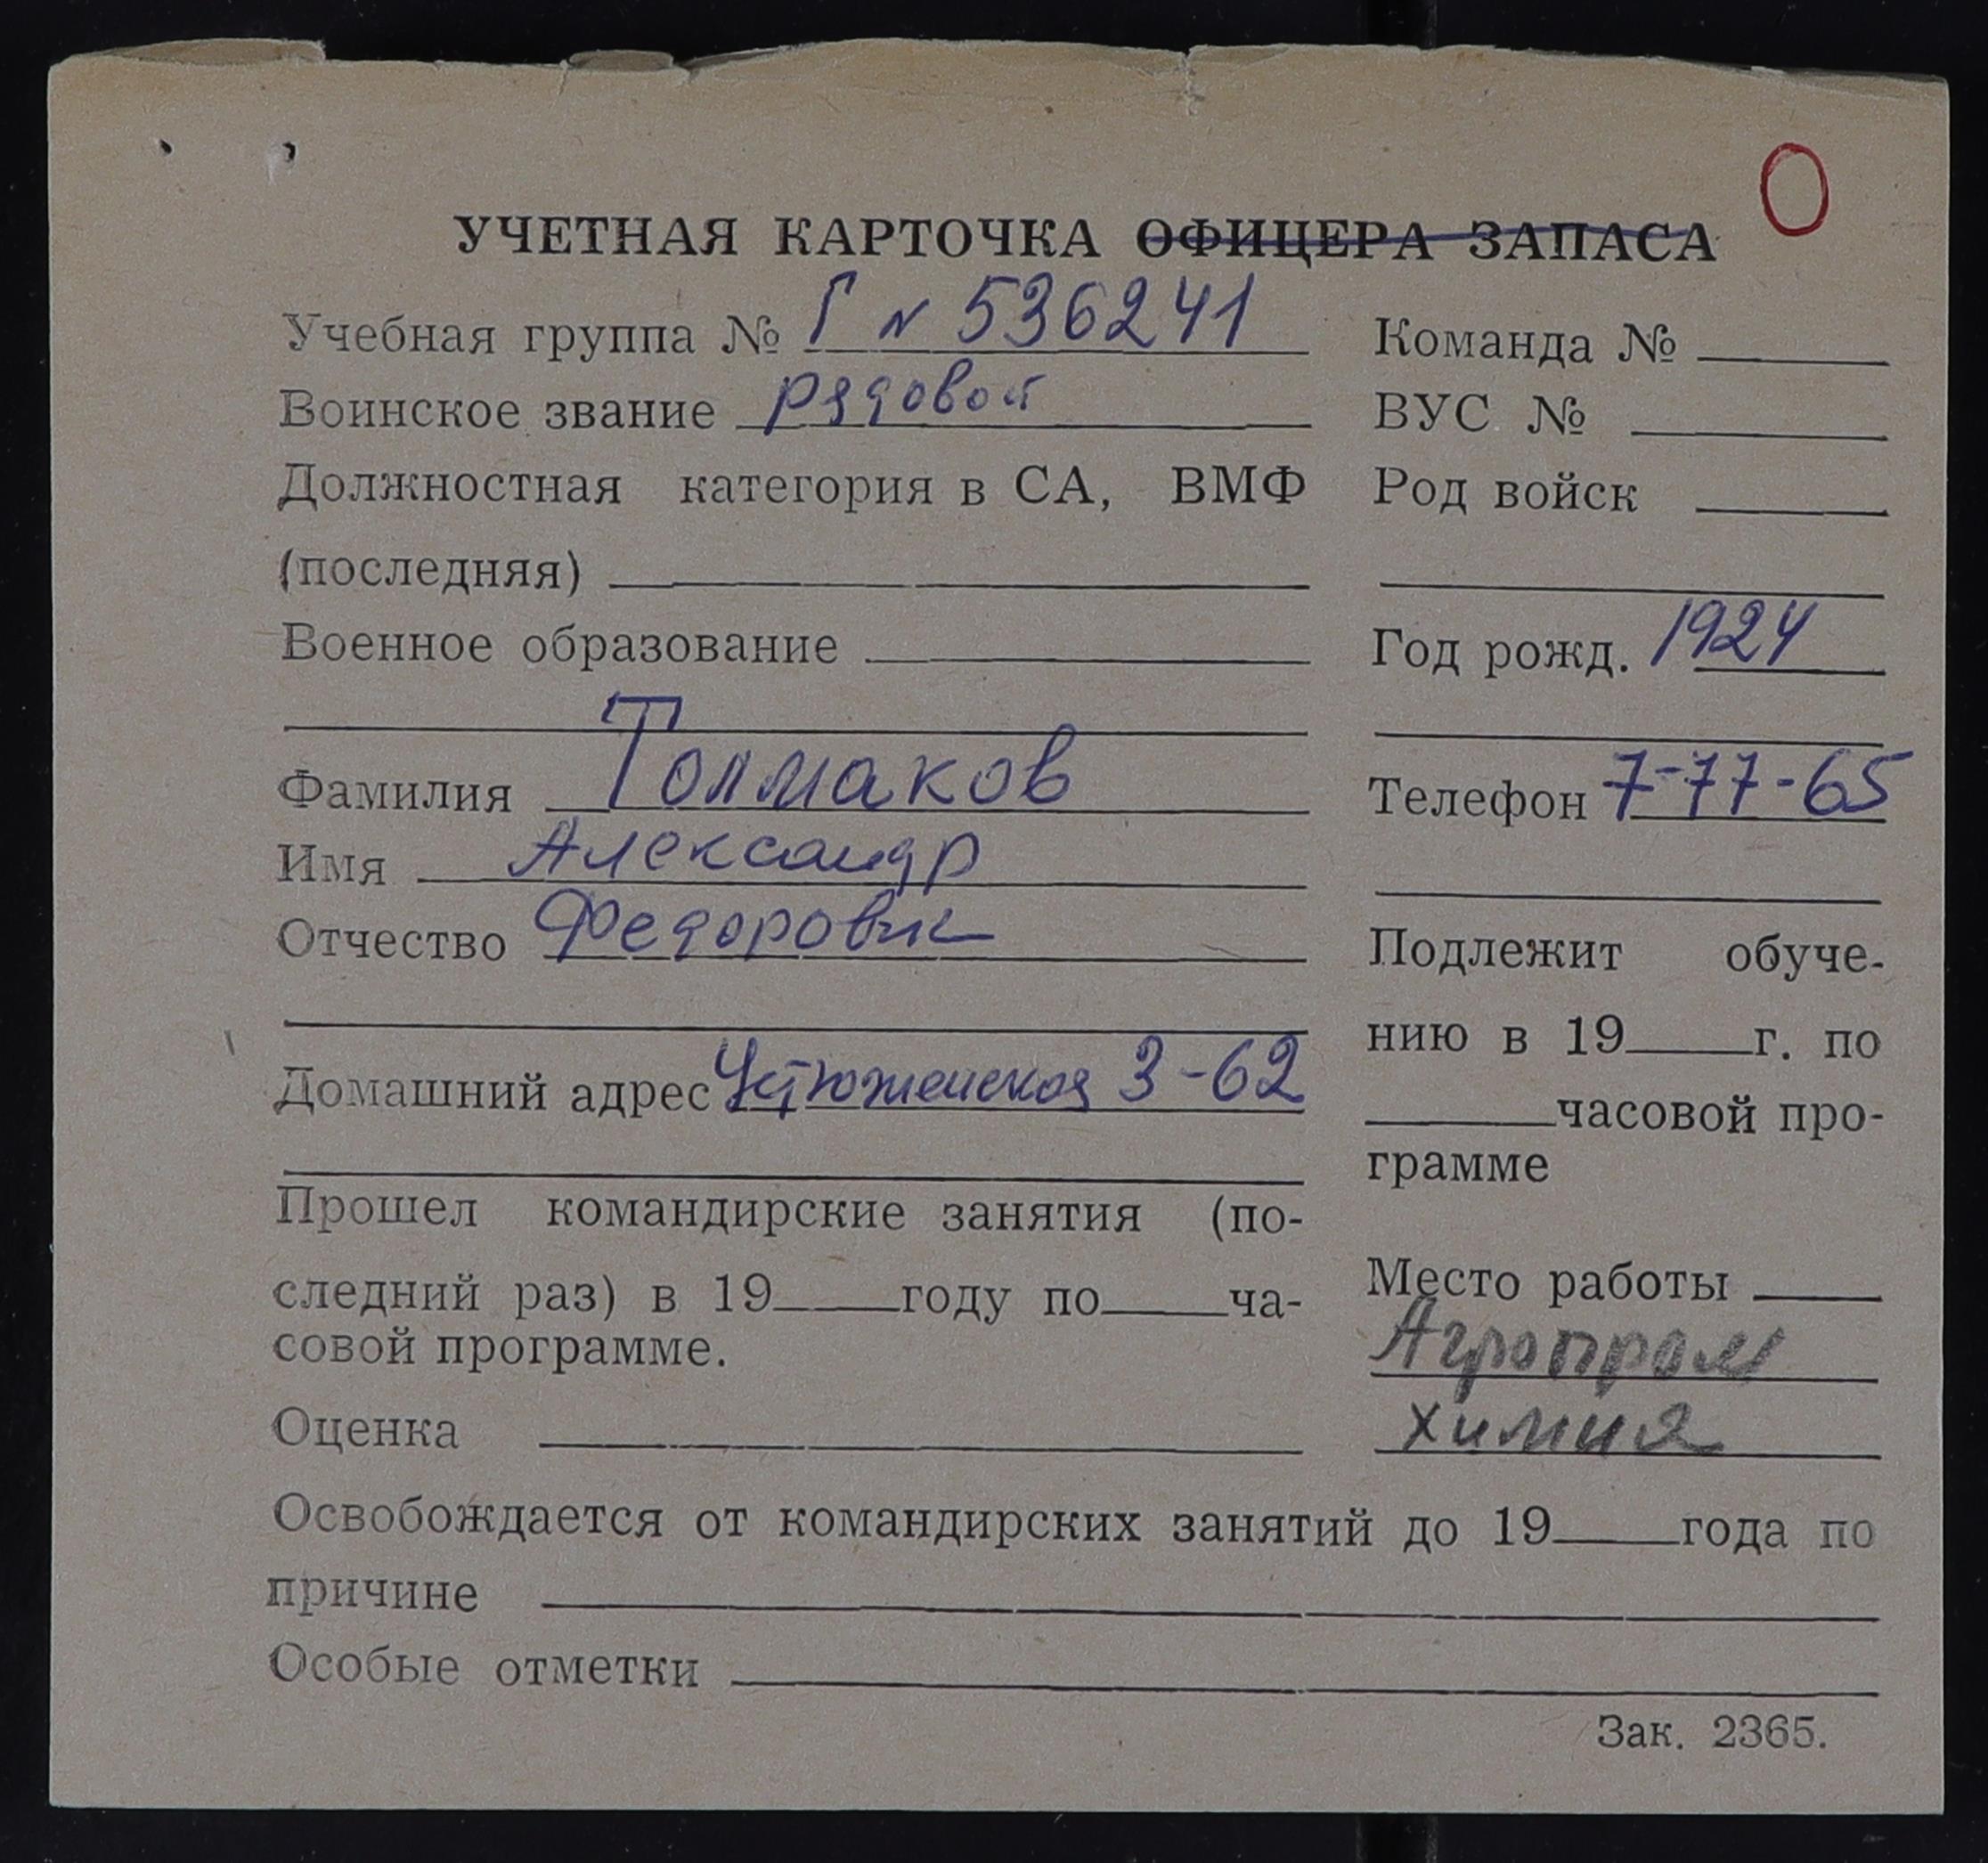 О
УЧЕТНАЯ КАРТОЧКА ОФИЦЕРА ЗАПАСА
Учебная группа № Г № 536241
Воинское звание рядовой
Должностная категория в СА, ВМФ
(последняя)
Военное образование
Фамилия Толмаков
Имя Александр
Отчество Федорович
Домашний адрес Устюженская 3-62
Прошел командирские занятия (по-
следний раз) в 19 году по ча-
совой программе.
Оценка
Команда №
ВУС №
Род войск
Год рожд. 1924
Телефон 7-77-65
Подлежит обуче-
нию в 19 г. по
часовой про-
грамме
Место работы
Агропром
химия
Освобождается от командирских занятий до 19 года по
причине
Особые отметки
Зак. 2365.